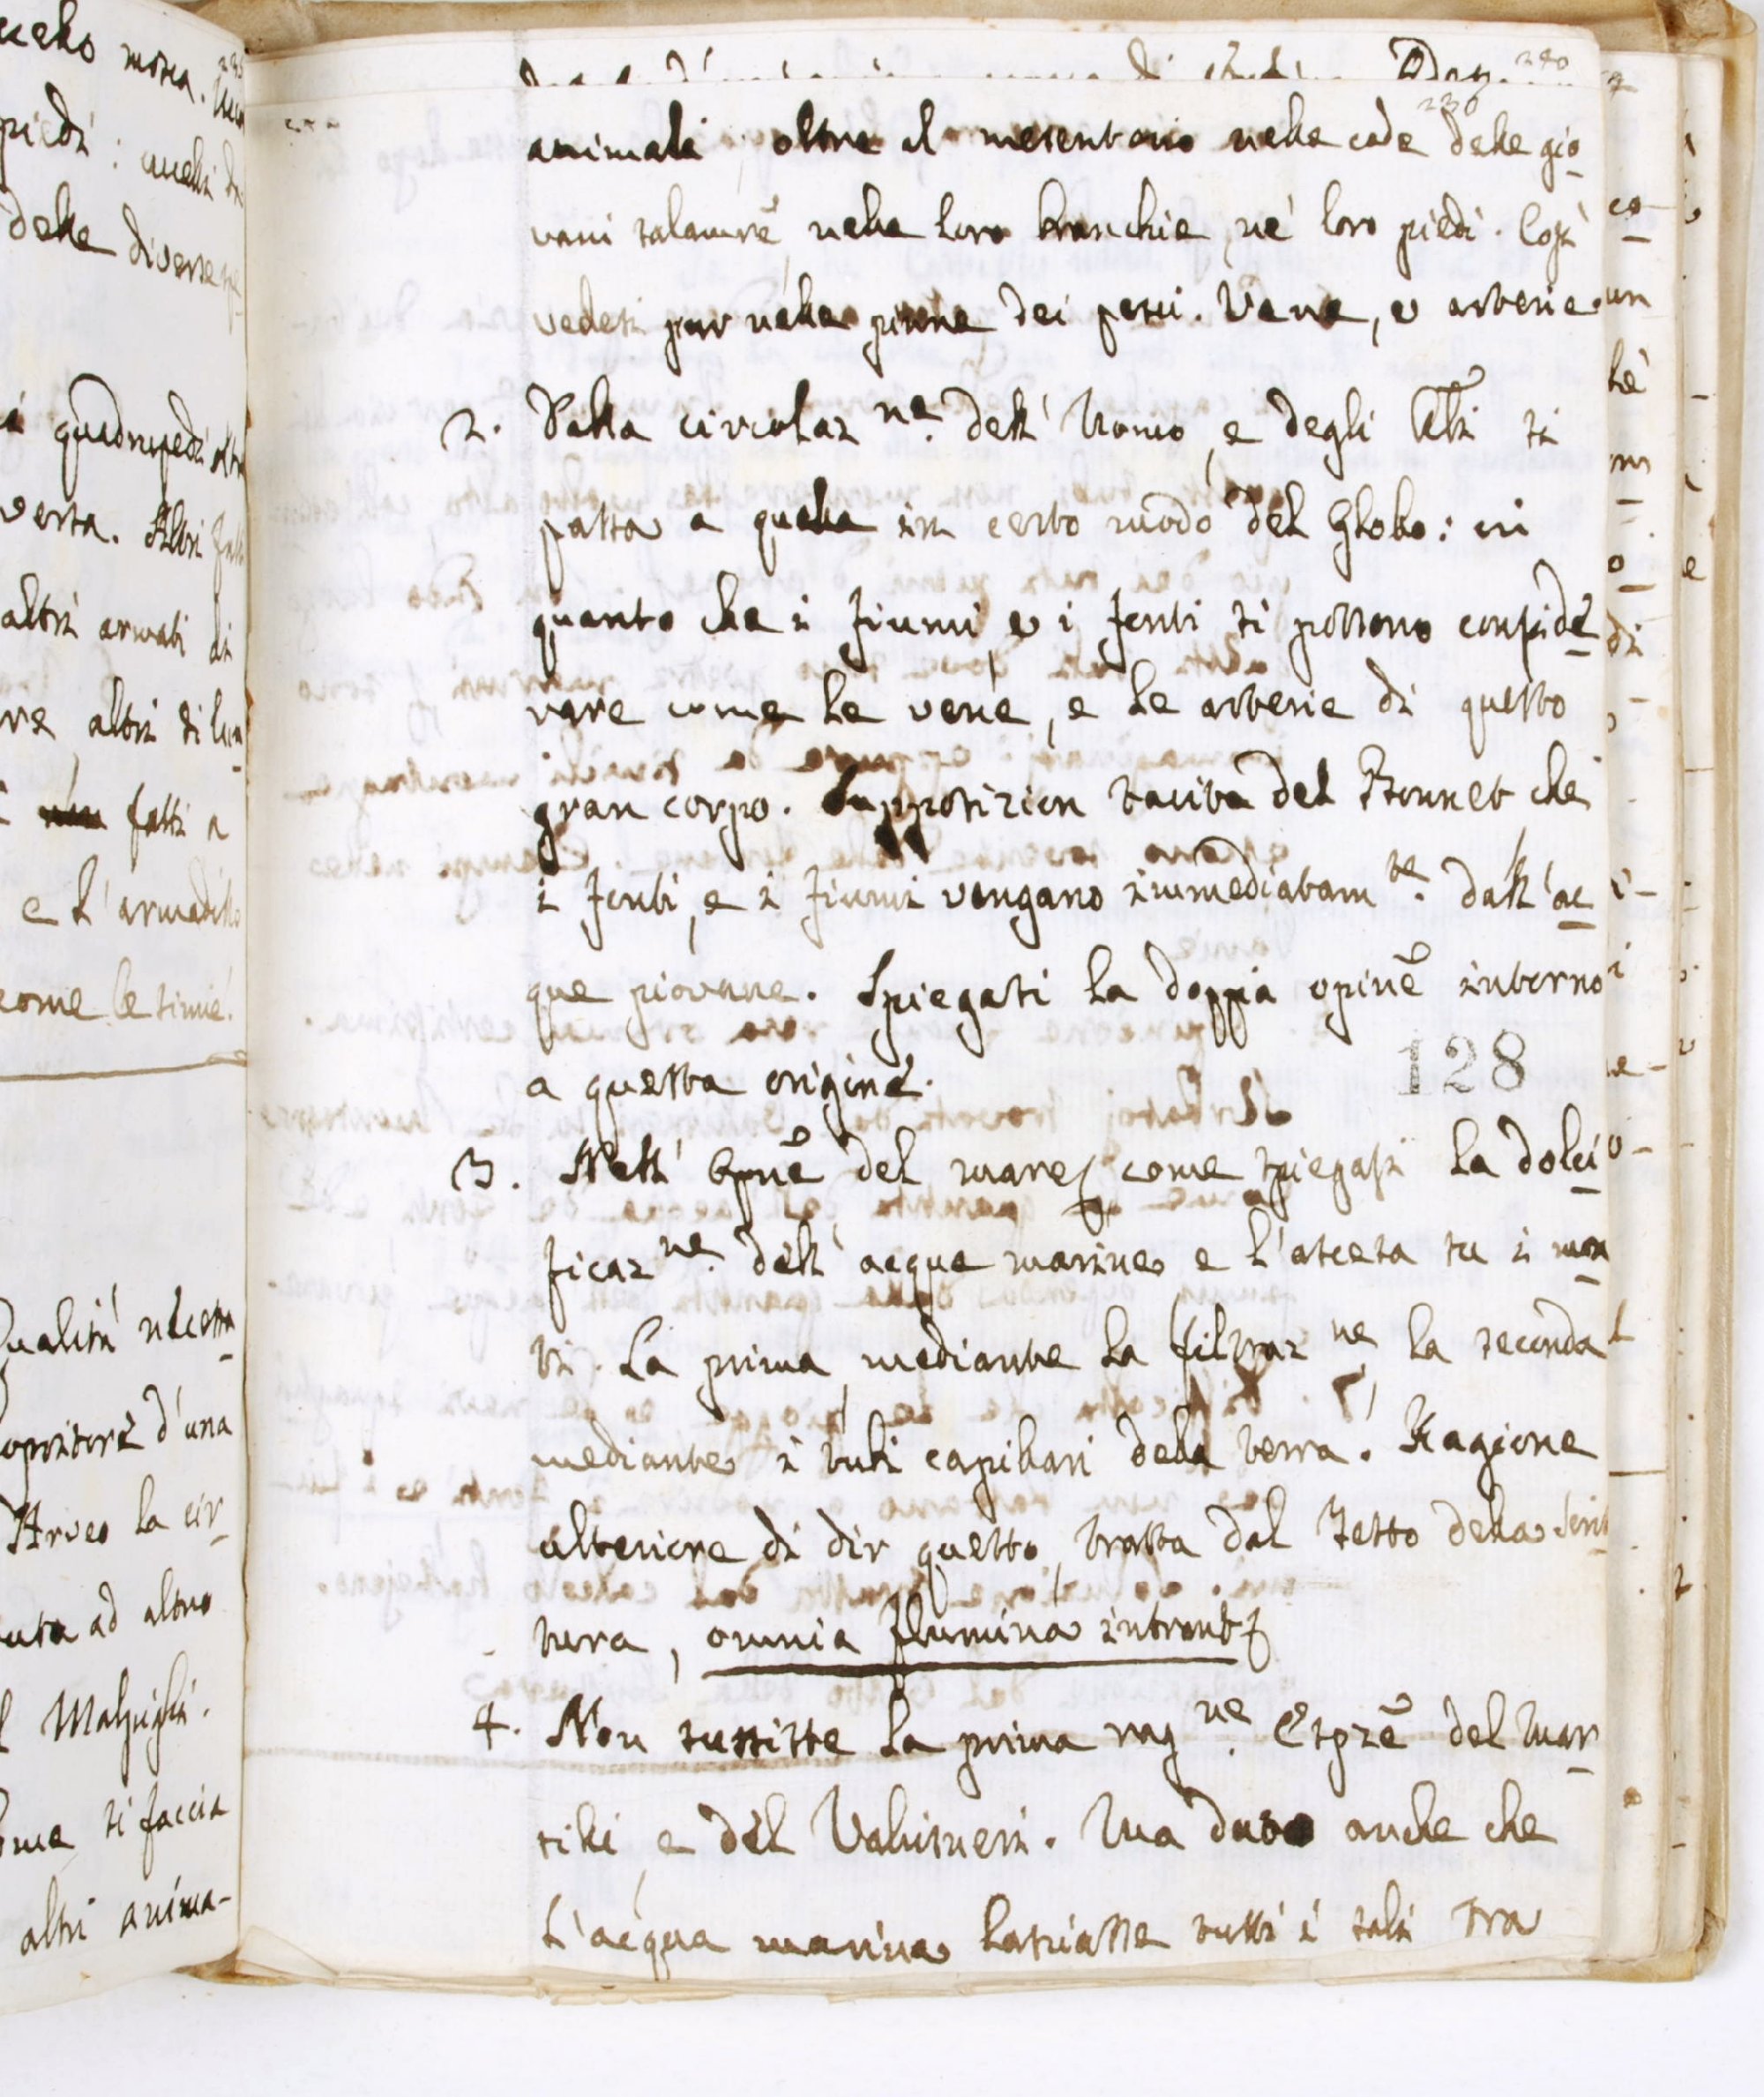 240
230
animali, oltre il mesenterio nelle code delle gio
vani salamre nelle loro branchie, ne' loro piedi. Così
vedesi pur nelle pinne dei pesci. Vene, e arterie.
2. Dalla circolaz.ne dell' Uomo, e degli Altri si
passa a quella in certo modo del Globo: in
quanto che i fiumi, e i fonti si possono conside
rare come le vene, e le arterie di questo
gran corpo. Supposizion tacita del Bonnet che
i fonti, e i fiumi vengano immediatam.te dall'ac
que piovane. Spiegasi la doppia opine intorno
a questa origine.
128
3. Nell' opne del mare, come spiegasi la dolci
ficaz.ne dell' acque marine e l'ascesa su i mon
ti. La prima mediante la filtraz.ne la seconda
mediante i tubi capillari della terra. Ragione
ulteriore di dir questo, tratta dal Testo della Scrit
tura, omnia flumina intrant
4. Non sussiste la prima rag.ne Espze del Mar
sili, e del Valisneri. Ma dato anche che
l'acqua marina lasciasse tutti i sali tra
piedi: quelli di
delle diverse
quadrupedi
verta. Altri
altri armati di
altri di
fatti a
e l'armadillo
come le simie.
Qualità
d'una
Arveo la cir
ad altro
Malpighi.
si faccia
altri anima-